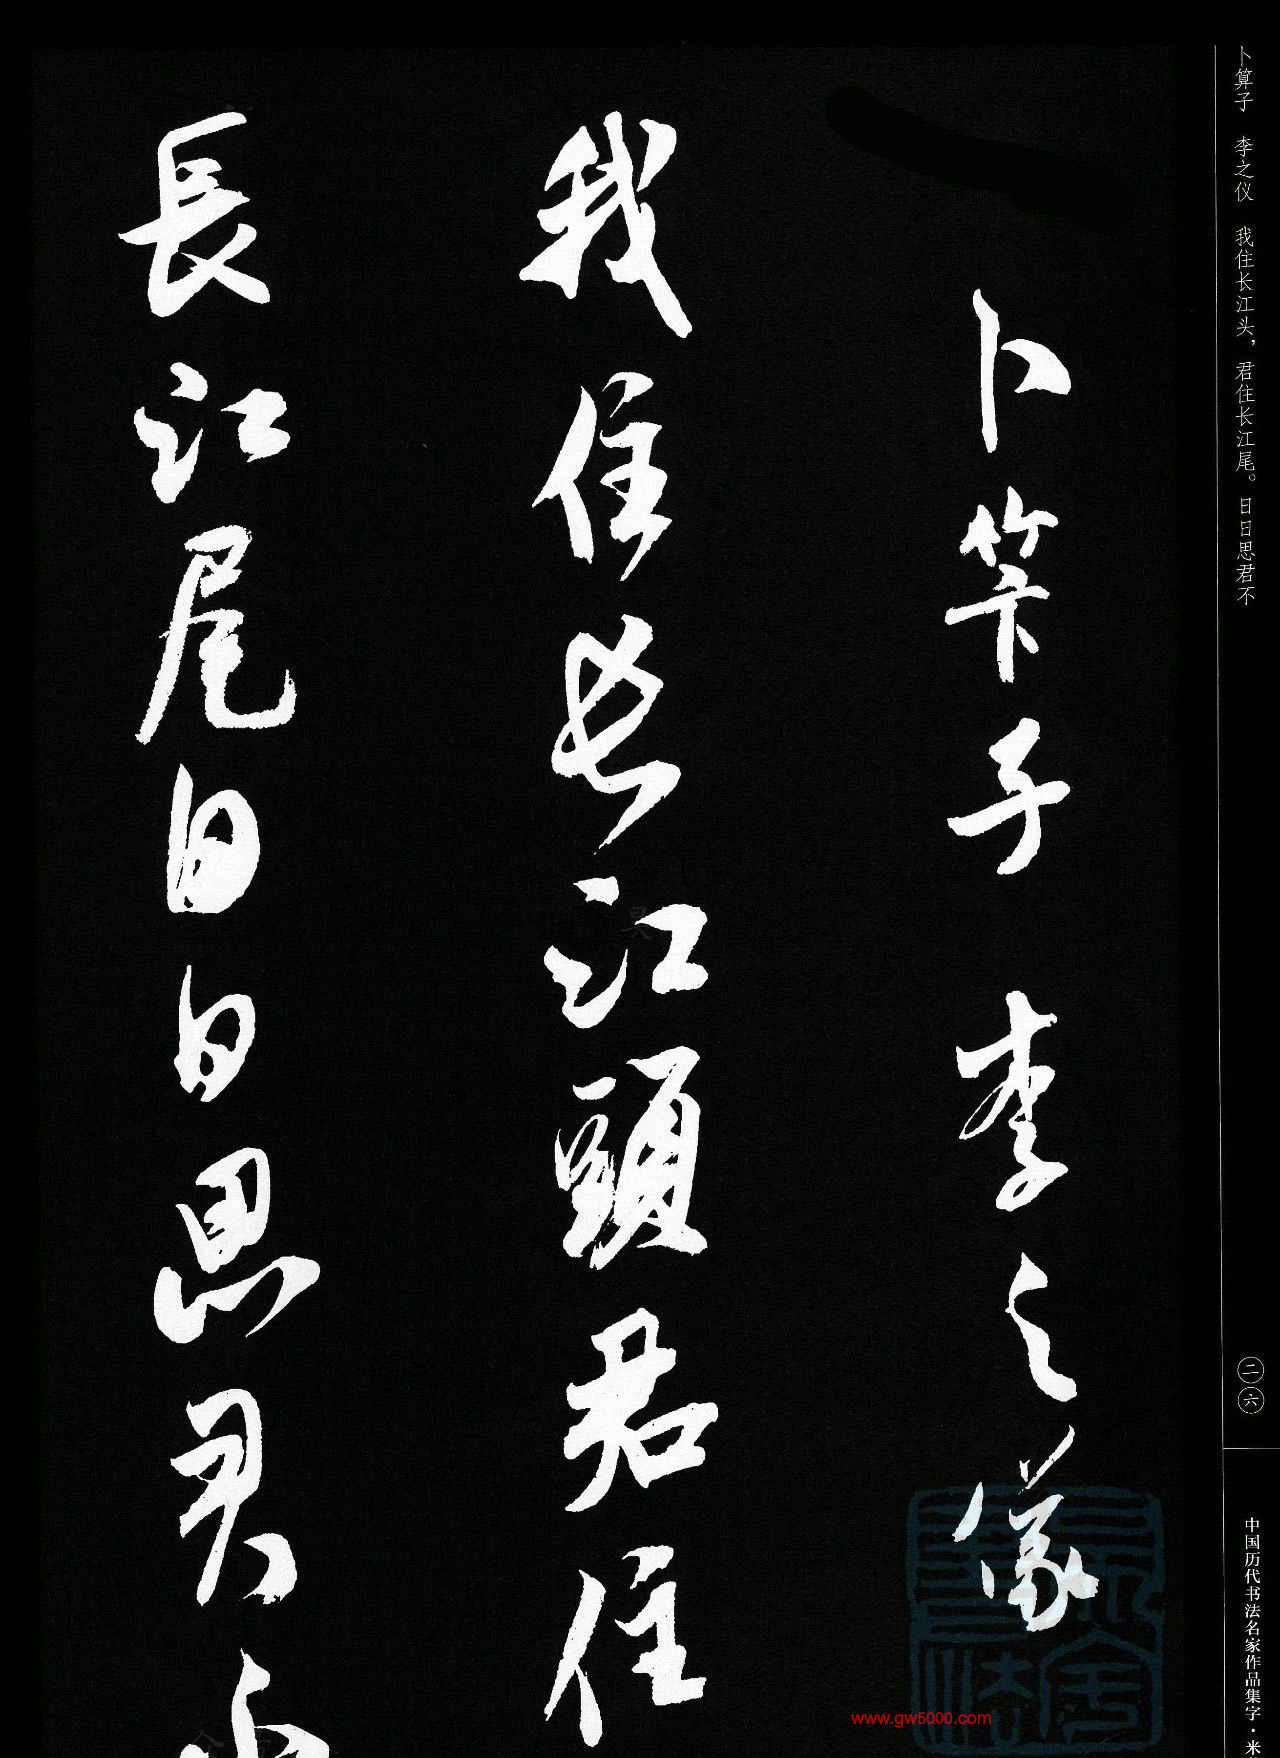 卜算子 李之仪 我住长江头，君住长江尾。日日思君不
二六
中国历代书法名家作品集字·米
卜算子 李之儀
我住長江頭君住
長江尾日日思君不
www.gw5000.com